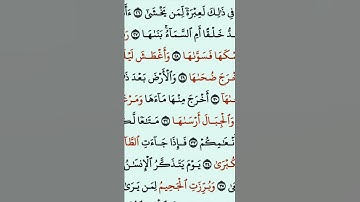 فِي ذَٰلِكَ لَعِبْرَةً لِّمَن يَخْشَىٰٓ ۝٢٦ ءَأَ
خَلْقًا أَمِ ٱلسَّمَآءُ ۚ بَنَىٰهَا ۝٢٧
فَسَوَّىٰهَا ۝٢٨ وَأَغْطَشَ
ضُحَىٰهَا ۝٢٩ وَٱلْأَرْضَ بَعْدَ
أَخْرَجَ مِنْهَا مَآءَهَا وَمَرْعَ
وَٱلْجِبَالَ أَرْسَىٰهَا ۝٣٢ مَتَٰعًا لَّكُ
فَإِذَا جَآءَتِ ٱلطَّآ
يَوْمَ يَتَذَكَّرُ ٱلْإِنسَٰنُ
وَبُرِّزَتِ ٱلْجَحِيمُ لِمَن يَرَىٰ